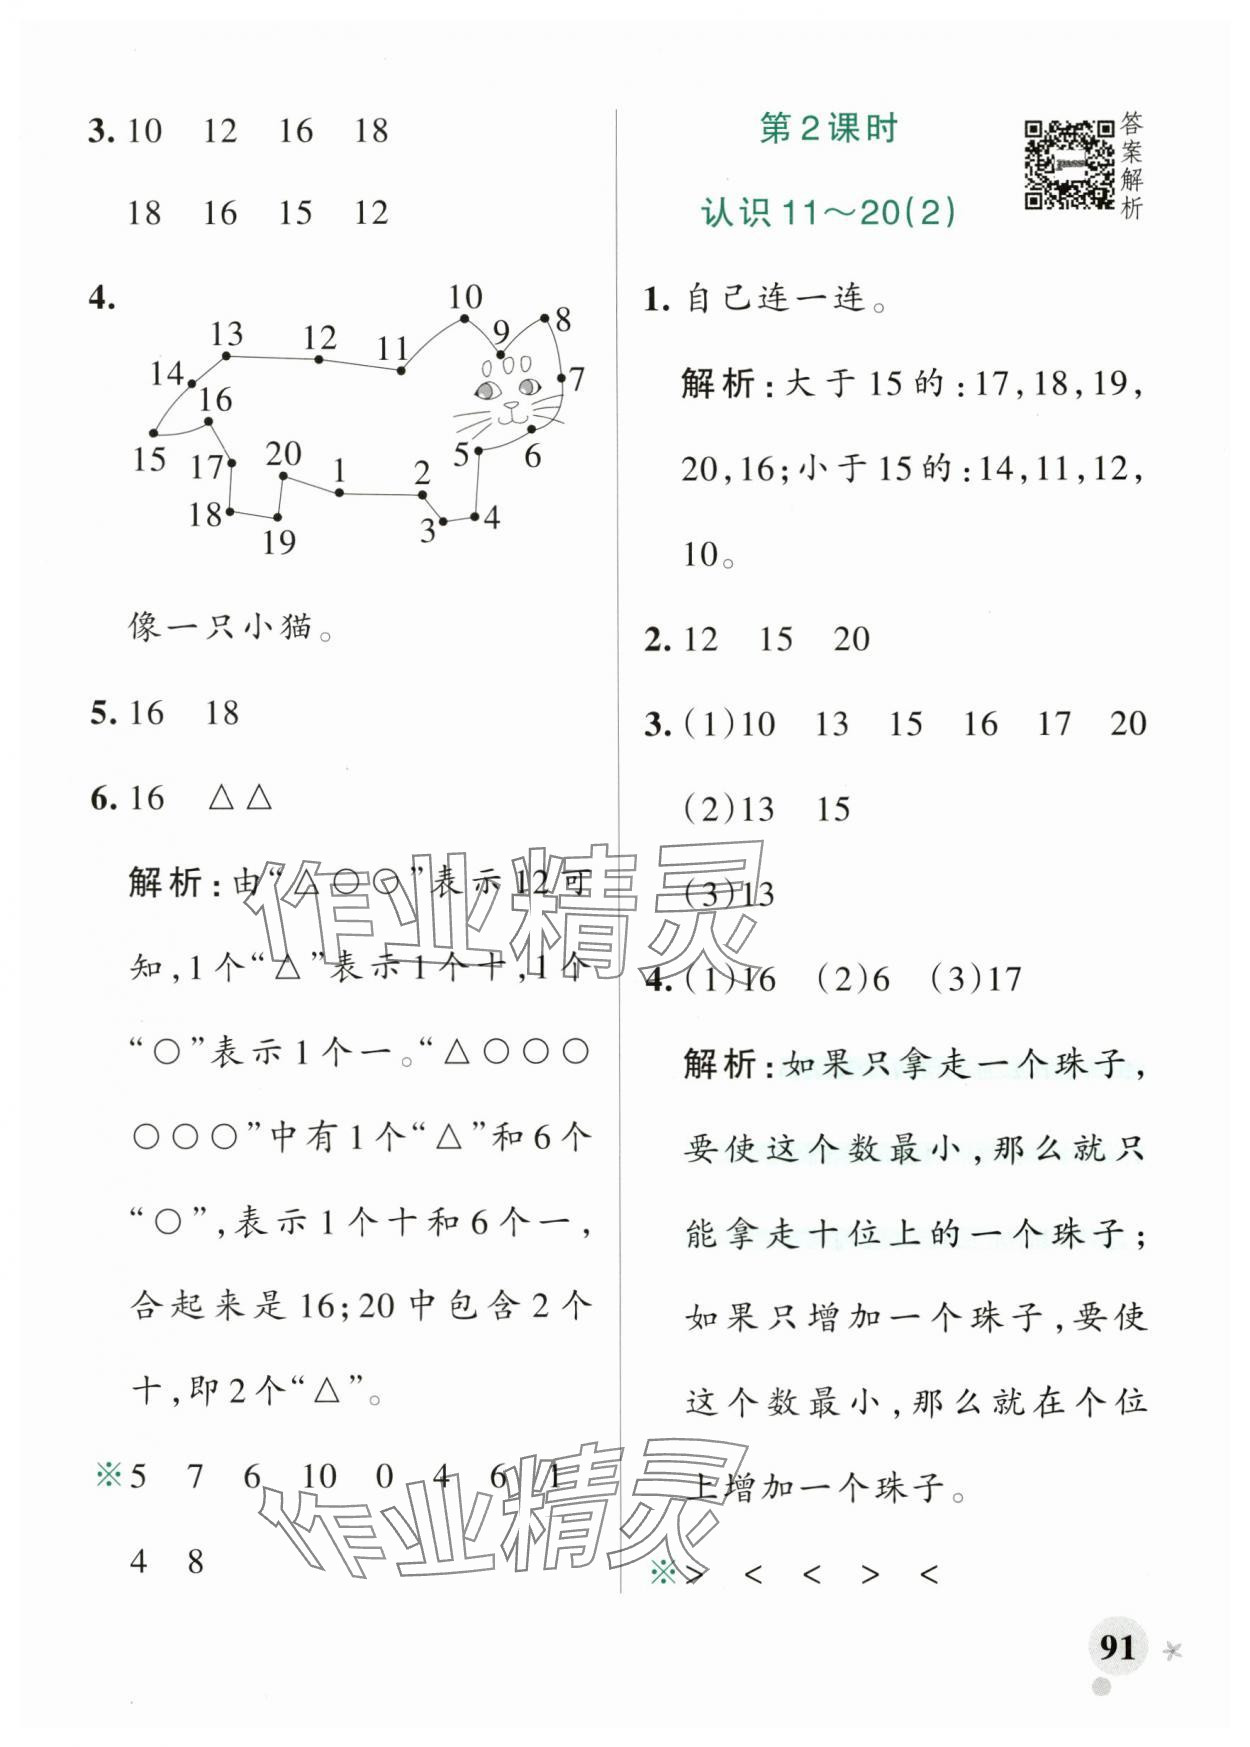 3. 10 12 16 18
18 16 15 12
4.
10
8
13
12
11
9
14
7
16
15
17
20
1
2
5
6
18
19
3
4
像一只小猫。
5. 16 18
6. 16 △△
解析:由“△○○”表示12可
知,1个“△”表示1个十,1个
“○”表示1个一。“△○○○
○○○”中有1个“△”和6个
“○”,表示1个十和6个一,
合起来是16;20中包含2个
十,即2个“△”。
※5 7 6 10 0 4 6 1
4 8
第2课时
认识11～20(2)
答案解析
1. 自己连一连。
解析:大于15的:17,18,19,
20,16;小于15的:14,11,12,
10。
2. 12 15 20
3. (1)10 13 15 16 17 20
(2)13 15
(3)13
4. (1)16 (2)6 (3)17
解析:如果只拿走一个珠子,
要使这个数最小,那么就只
能拿走十位上的一个珠子;
如果只增加一个珠子,要使
这个数最小,那么就在个位
上增加一个珠子。
※> < < > <
91
作业精灵
作业精灵